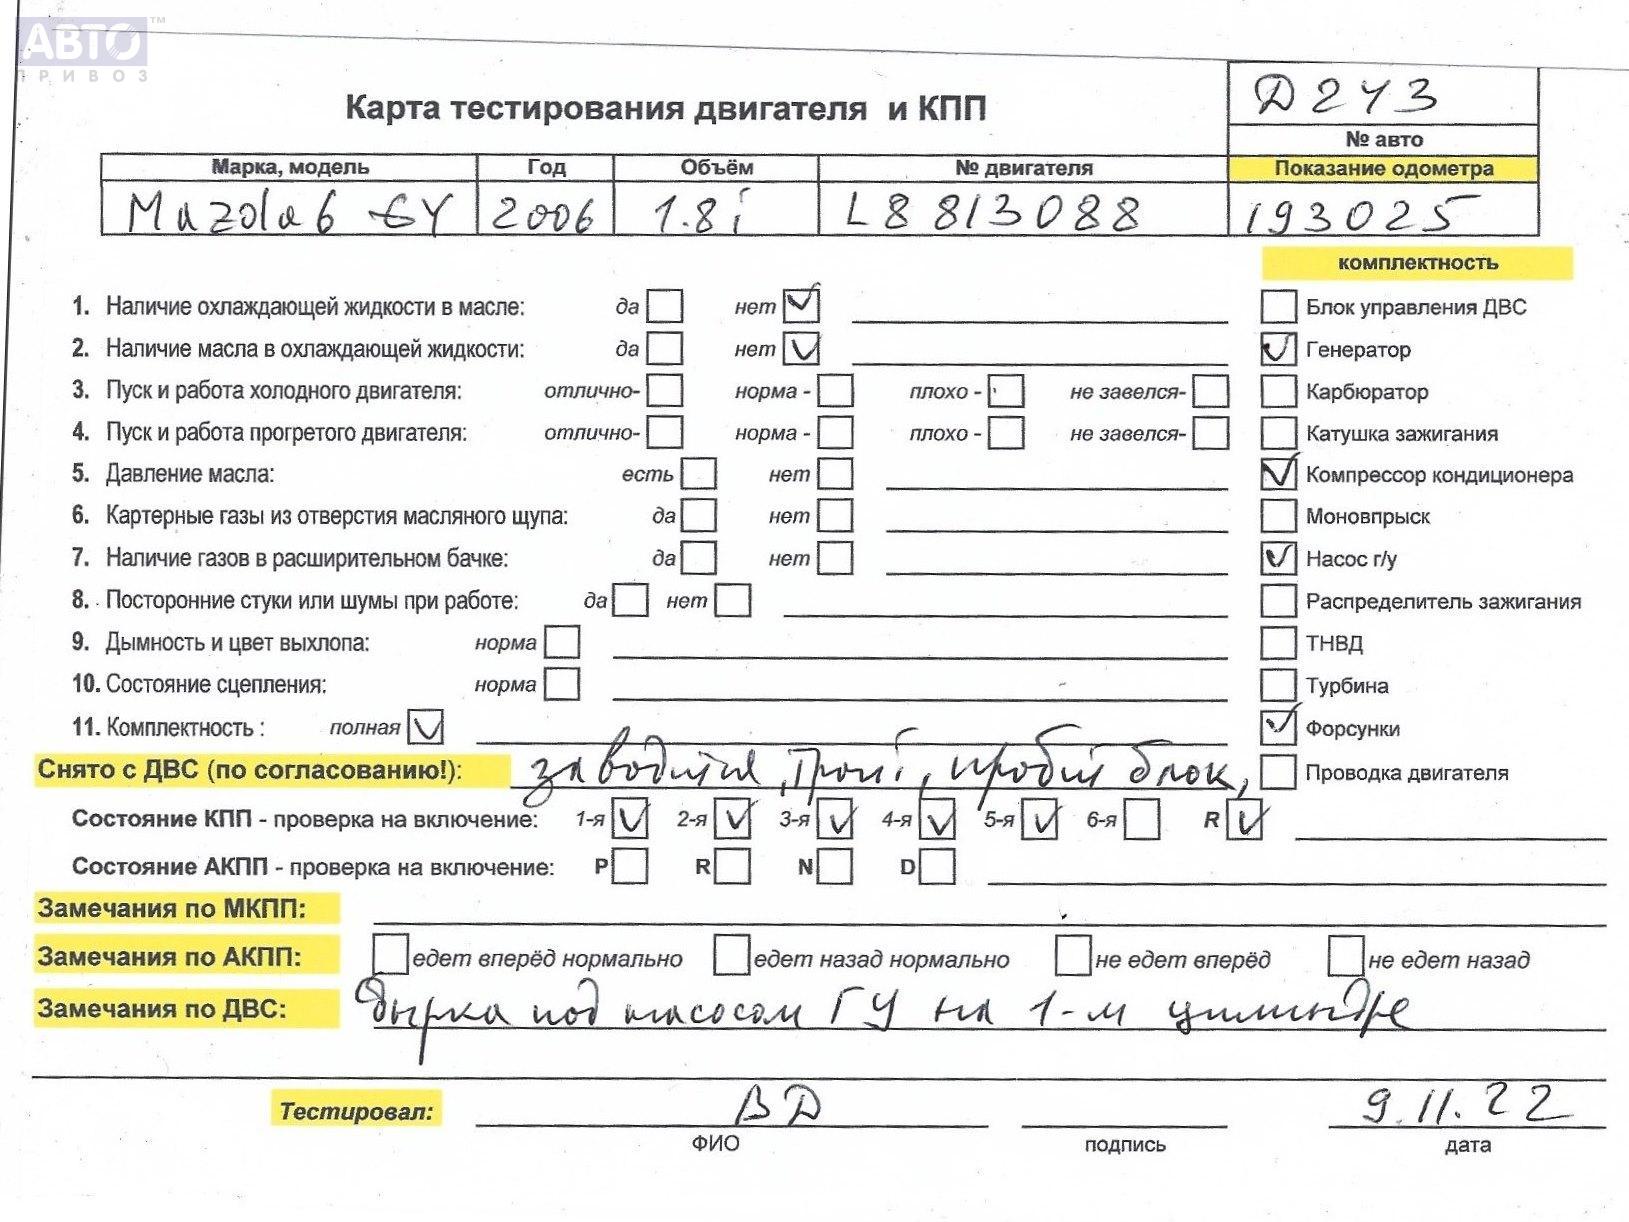 АВТО ™
ПРИВОЗ
Карта тестирования двигателя и КПП
Д243
№ авто
Марка, модель Год Объём № двигателя Показание одометра
Mazda 6 GY 2006 1.8i L8 813088 193025
комплектность
1. Наличие охлаждающей жидкости в масле: да нет Блок управления ДВС
2. Наличие масла в охлаждающей жидкости: да нет Генератор
3. Пуск и работа холодного двигателя: отлично- норма - плохо - не завелся- Карбюратор
4. Пуск и работа прогретого двигателя: отлично- норма - плохо - не завелся- Катушка зажигания
5. Давление масла: есть нет Компрессор кондиционера
6. Картерные газы из отверстия масляного щупа: да нет Моновпрыск
7. Наличие газов в расширительном бачке: да нет Насос г/у
8. Посторонние стуки или шумы при работе: да нет Распределитель зажигания
9. Дымность и цвет выхлопа: норма ТНВД
10. Состояние сцепления: норма Турбина
11. Комплектность : полная Форсунки
Снято с ДВС (по согласованию!): заводится, троит, пробит блок, Проводка двигателя
Состояние КПП - проверка на включение: 1-я 2-я 3-я 4-я 5-я 6-я R
Состояние АКПП - проверка на включение: P R N D
Замечания по МКПП:
Замечания по АКПП: едет вперёд нормально едет назад нормально не едет вперёд не едет назад
Замечания по ДВС: дырка под насосом ГУ на 1-м цилиндре
Тестировал: ВД 9.11.22
ФИО подпись дата